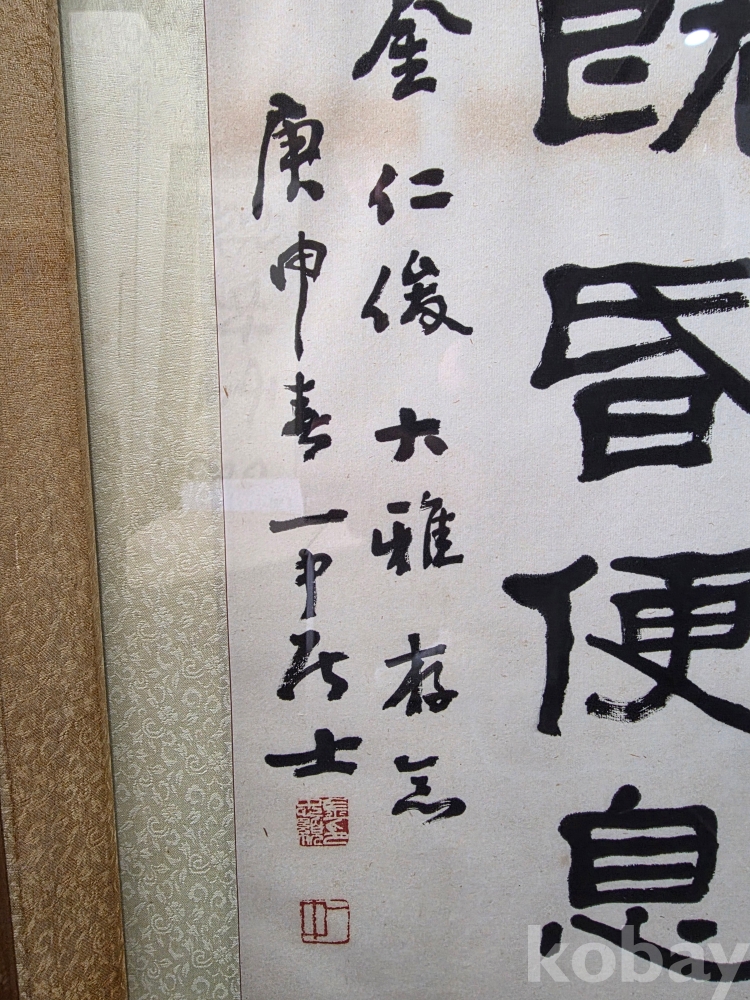 既昏便息
金仁俊大雅存念
庚申春一中居士
一中
kobay